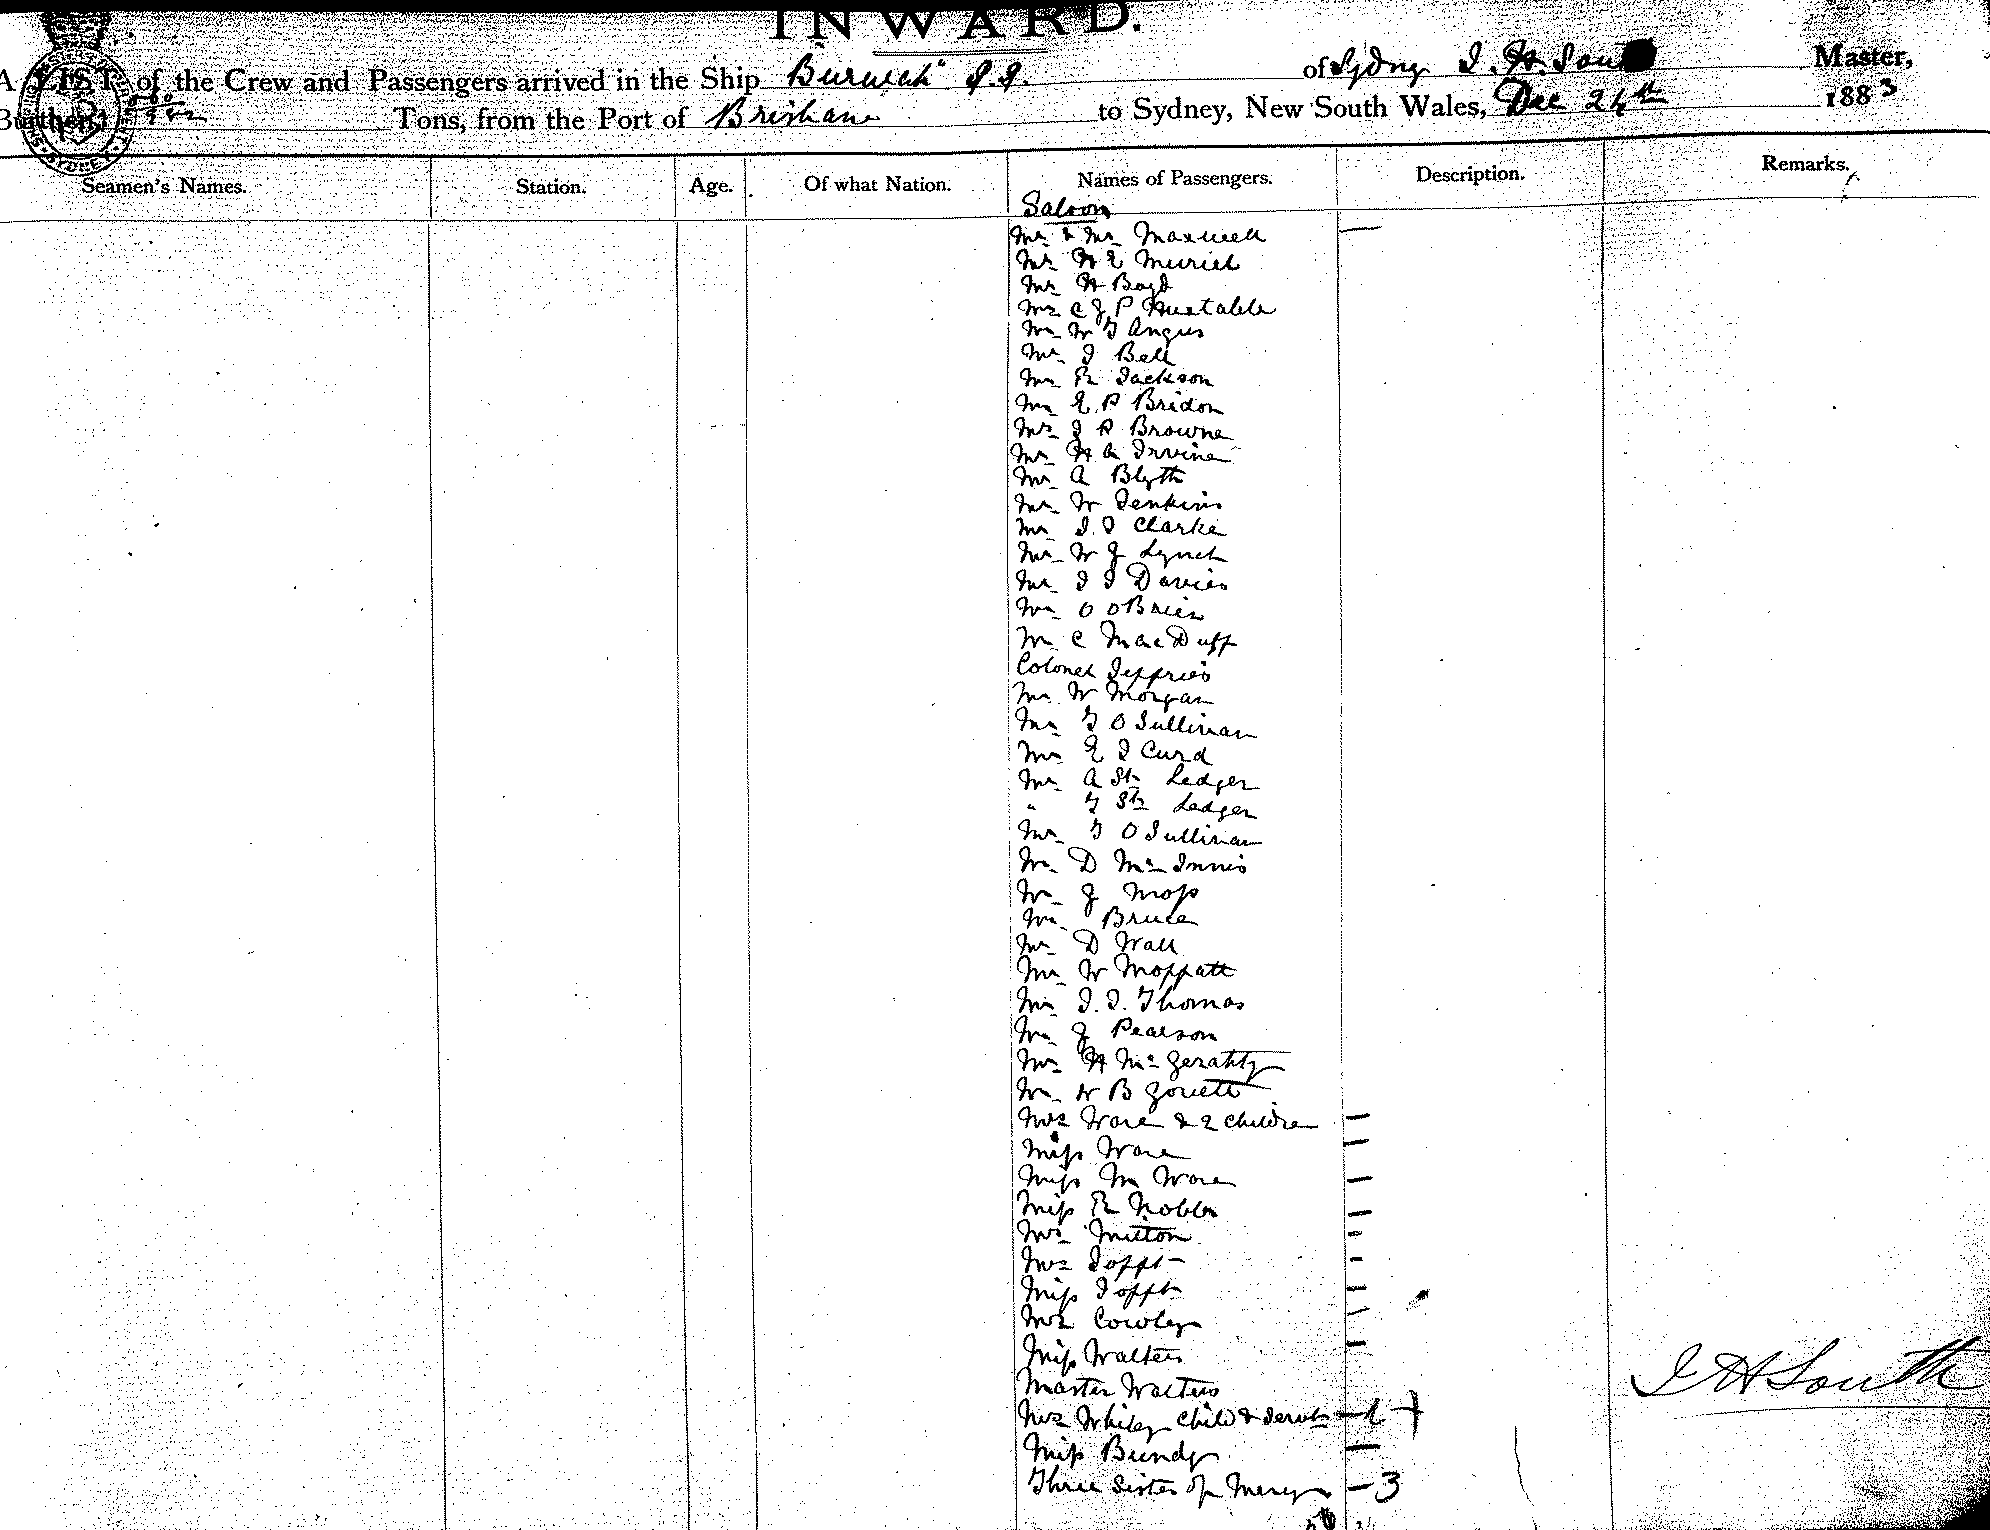 INWARD.
A LIST of the Crew and Passengers arrived in the Ship "Burwick" S.S. of Sydney J. H. South Master,
Burthen Tons, from the Port of Brisbane to Sydney, New South Wales, Dec 24th 1883
Seamen's Names. Station. Age. Of what Nation. Names of Passengers. Description. Remarks.
Saloon
Mr & Mrs Maxwell
Mr H E Muriel
Mr H Boyd
Mr C J P Huxtable
Mr W G Angus
Mr J Bell
Mr R Jackson
Mr E. P Bridon
Mr J P Browne
Mr H A Irvine
Mr A Blyth
Mr W Jenkins
Mr J. J Clarke
Mr W J Lynch
Mr J J Davies
Mr O OBrien
Mr C MacDuff
Colonel Jeffries
Mr W Morgan
Mr T O Sullivan
Mr E J Curd
Mr A St Ledger
" T St Ledger
Mr T O Sullivan
Mr D McInnis
Mr J Moss
Mr Bruce
Mr D Wall
Mr W Moffatt
Mr J. J. Thomas
Mr J Pearson
Mr H Mc Gerahty
Mr W B
Mrs Ware & 2 children
Miss Ware
Miss M Ware
Miss R Noble
Mrs Mitton
Mrs Jopp
Miss Jopp
Mrs Cowley
Miss Walters
Master Walters
J H South
Mrs Whiley child & Servt
Miss Bundy
Three Sisters of Mercy 3